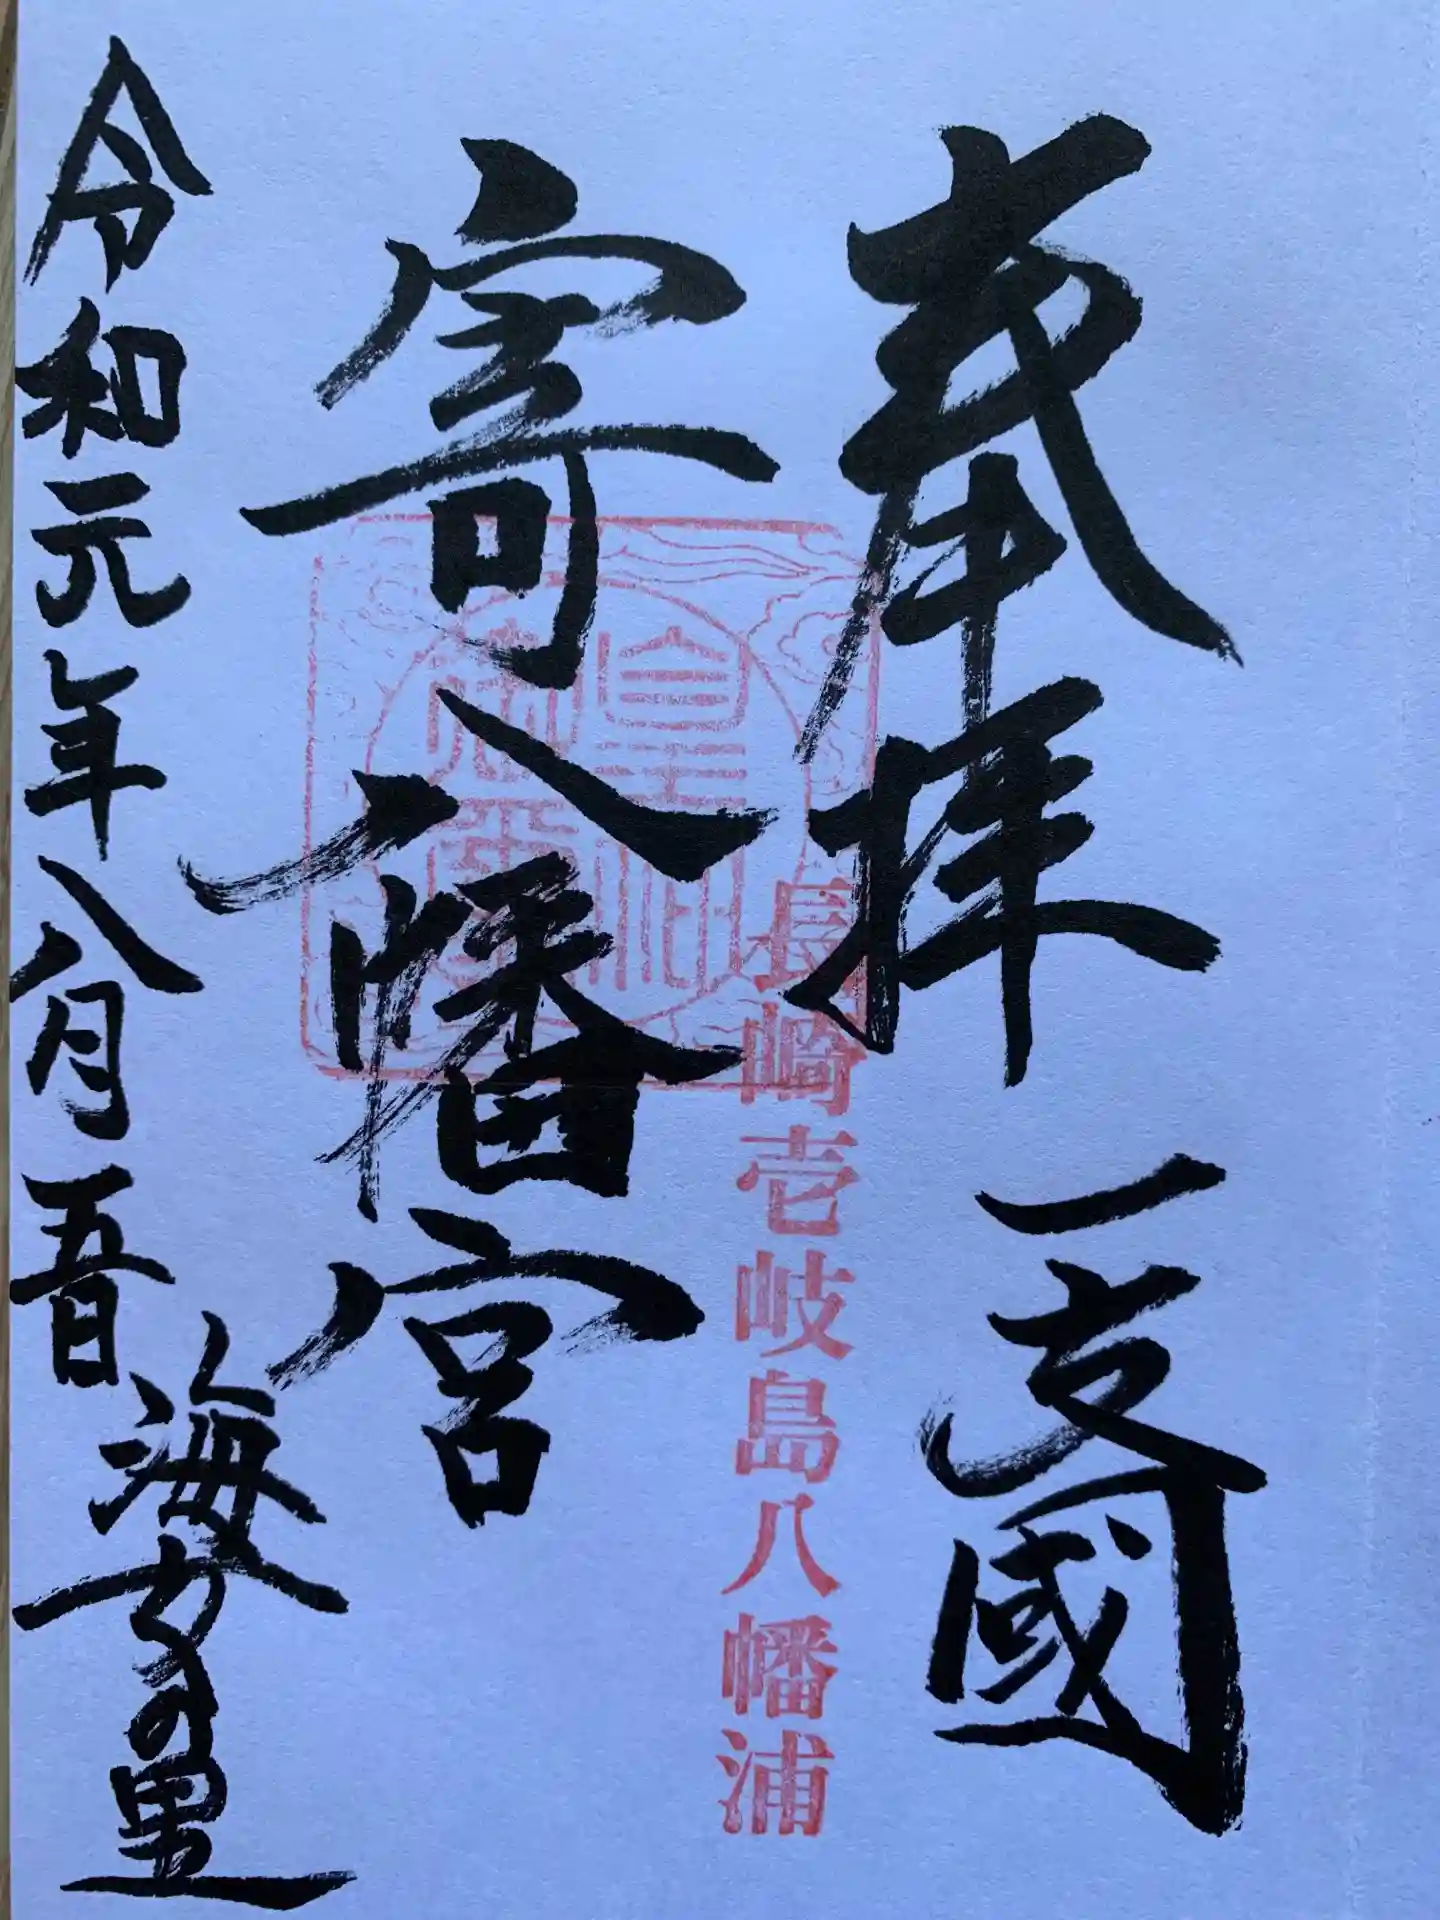 奉拝 一支國
長崎壱岐島八幡浦
寄八幡宮
令和元年八月五日
海女の里